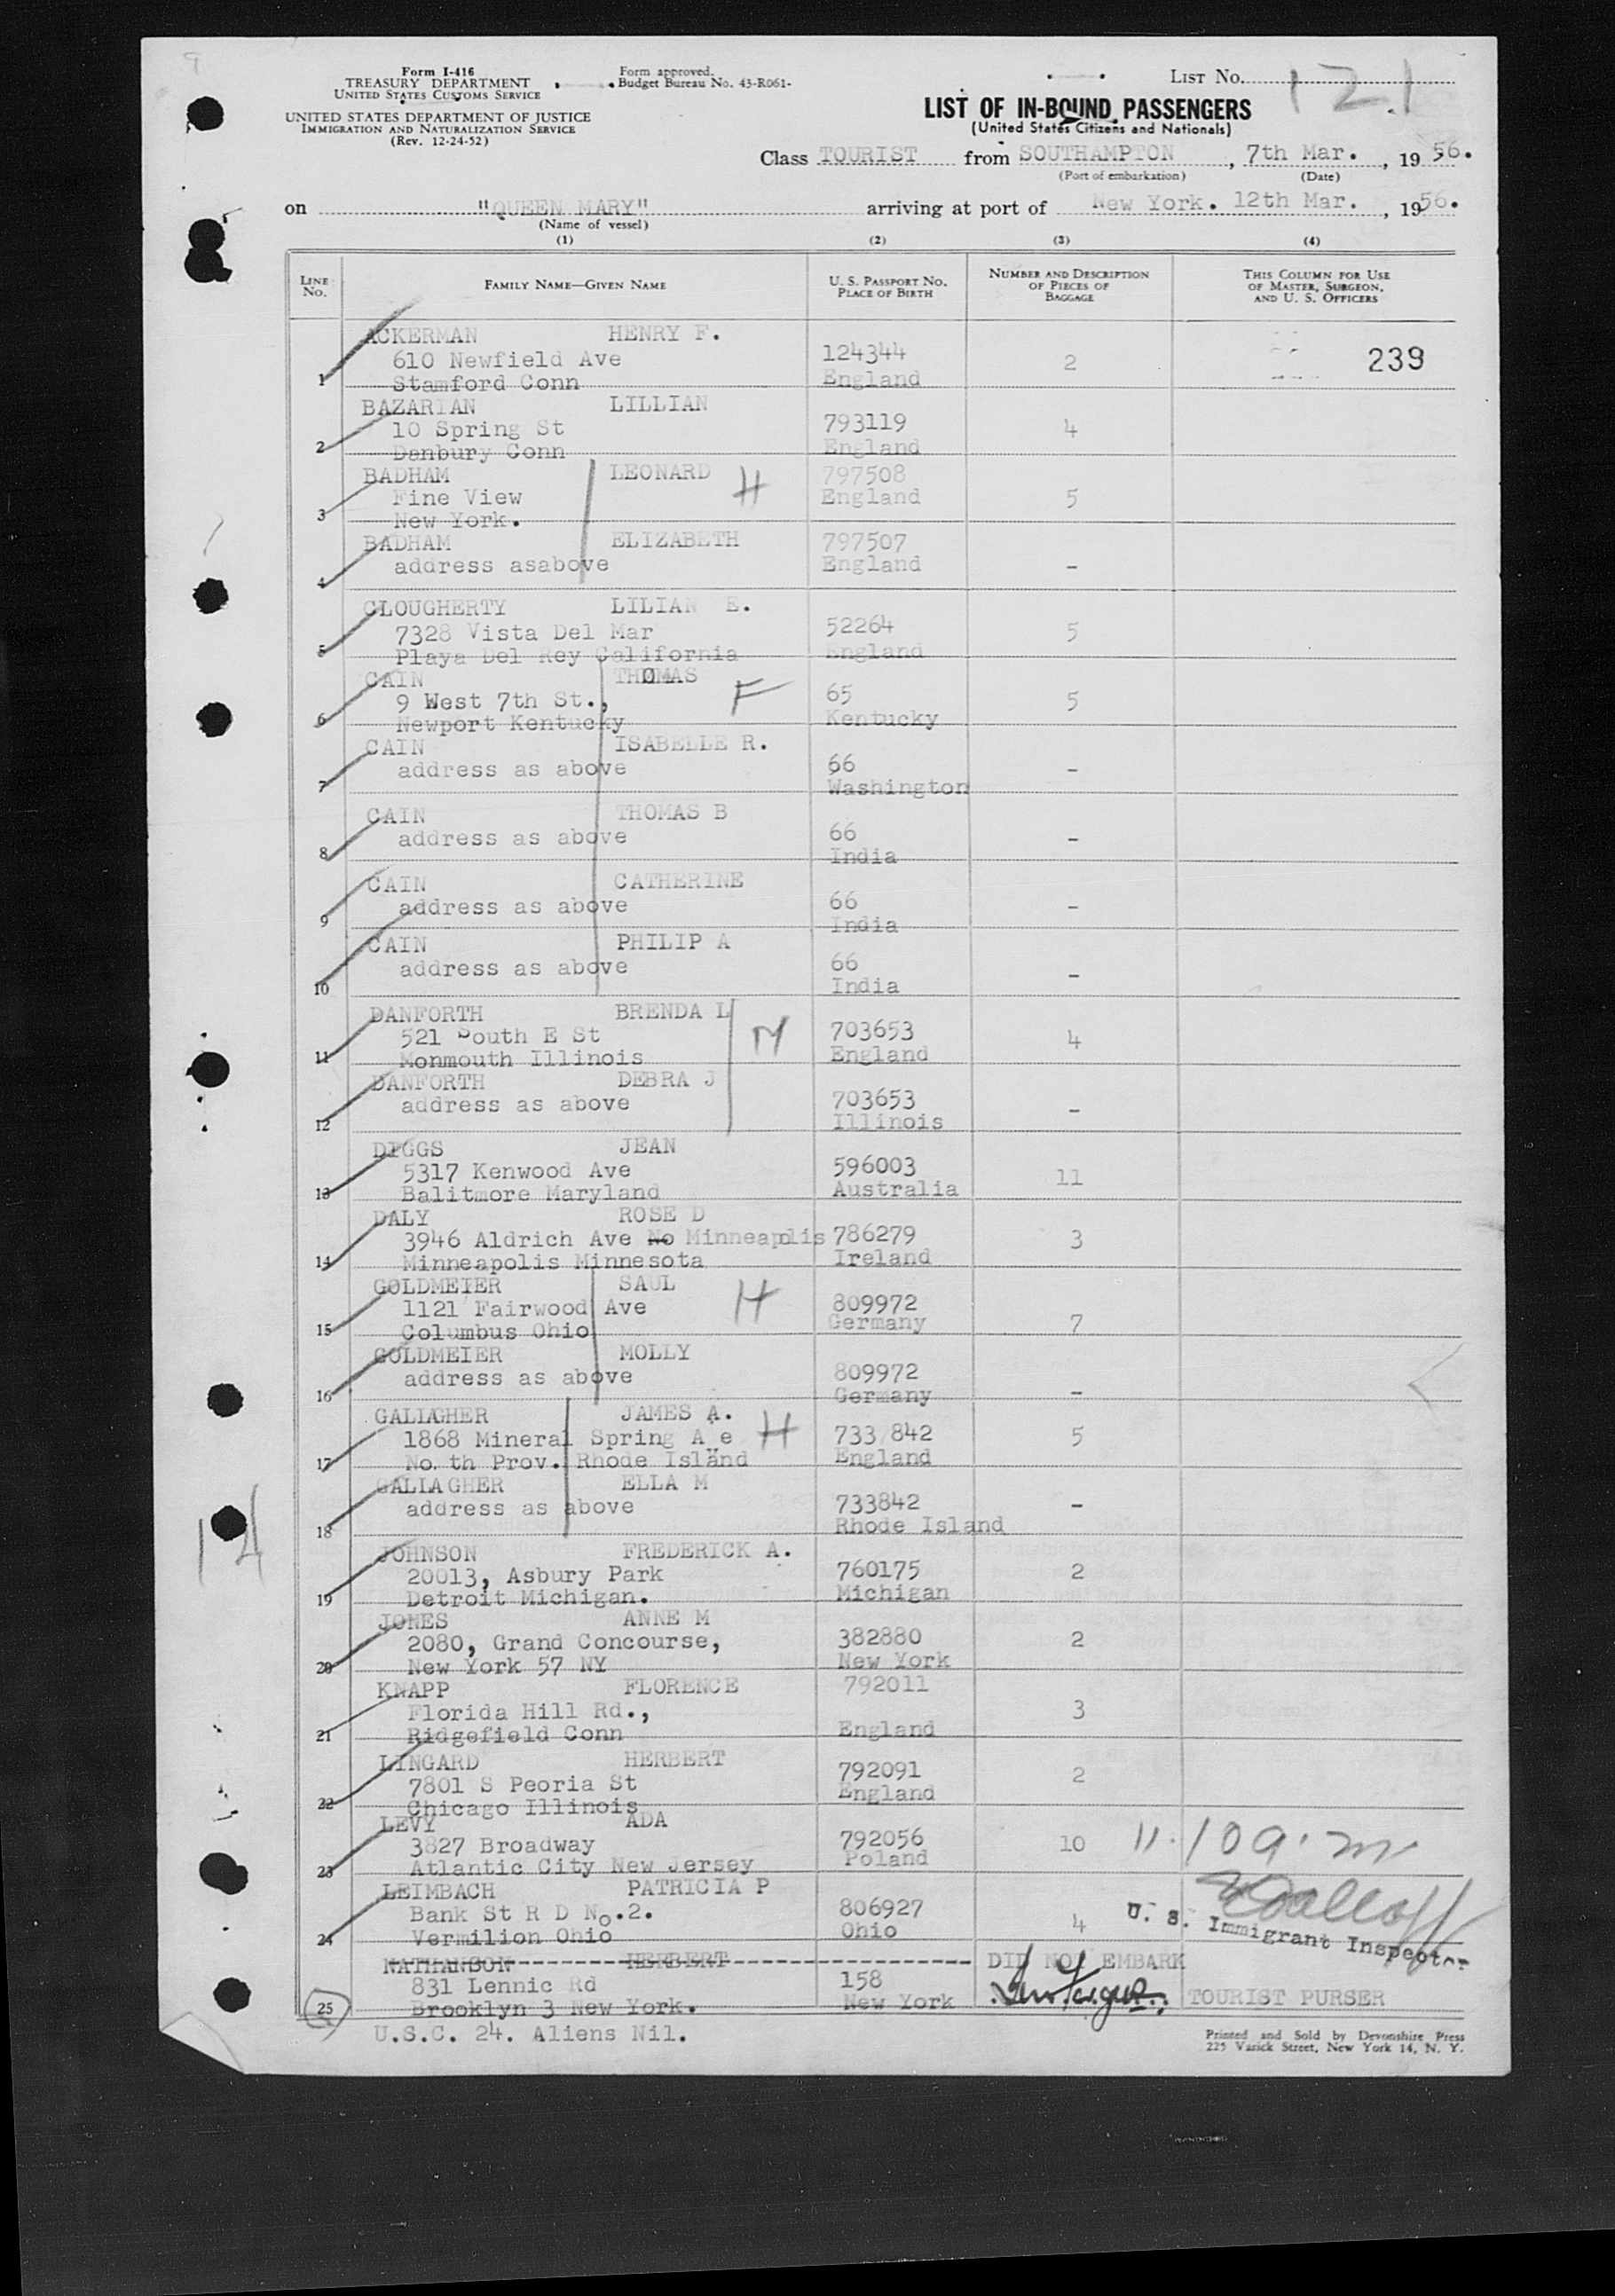 Form I-416
TREASURY DEPARTMENT
UNITED STATES CUSTOMS SERVICE
UNITED STATES DEPARTMENT OF JUSTICE
IMMIGRATION AND NATURALIZATION SERVICE
(Rev. 12-24-52)
Form approved.
Budget Bureau No. 43-R061-
LIST No. 121
LIST OF IN-BOUND PASSENGERS
(United States Citizens and Nationals)
Class TOURIST from SOUTHAMPTON, 7th Mar., 1956.
(Port of embarkation) (Date)
on "QUEEN MARY" arriving at port of New York. 12th Mar., 1956.
(Name of vessel)
(1) (2) (3) (4)
LINE No. FAMILY NAME—GIVEN NAME U. S. PASSPORT NO. PLACE OF BIRTH NUMBER AND DESCRIPTION OF PIECES OF BAGGAGE THIS COLUMN FOR USE OF MASTER, SURGEON, AND U. S. OFFICERS
ACKERMAN HENRY F.
610 Newfield Ave 124344 2 239
1 Stamford Conn England
BAZARIAN LILLIAN
10 Spring St 793119 4
2 Danbury Conn England
BADHAM LEONARD H 797508
Fine View England 5
3 New York.
BADHAM ELIZABETH 797507
address asabove England -
4
CLOUGHERTY LILIAN E.
7328 Vista Del Mar 52264 5
5 Playa Del Rey California England
CAIN THOMAS F
9 West 7th St., 65 5
6 Newport Kentucky Kentucky
CAIN ISABELLE R.
address as above 66 -
7 Washington
CAIN THOMAS B
address as above 66 -
8 India
CAIN CATHERINE
address as above 66 -
9 India
CAIN PHILIP A
address as above 66 -
10 India
DANFORTH BRENDA L M
521 South E St 703653 4
11 Monmouth Illinois England
DANFORTH DEBRA J
address as above 703653 -
12 Illinois
DIGGS JEAN
5317 Kenwood Ave 596003 11
13 Balitmore Maryland Australia
DALY ROSE D
3946 Aldrich Ave No Minneaplis 786279 3
14 Minneapolis Minnesota Ireland
GOLDMEIER SAUL H
1121 Fairwood Ave 809972
15 Columbus Ohio Germany 7
GOLDMEIER MOLLY
address as above 809972
16 Germany -
GALLAGHER JAMES A. H
1868 Mineral Spring A e 733 842 5
17 No. th Prov. Rhode Island England
GALLAGHER ELLA M
address as above 733842 -
18 Rhode Island
JOHNSON FREDERICK A.
20013, Asbury Park 760175 2
19 Detroit Michigan. Michigan
JONES ANNE M
2080, Grand Concourse, 382880 2
20 New York 57 NY New York
KNAPP FLORENCE 792011
Florida Hill Rd., 3
21 Ridgefield Conn England
LINGARD HERBERT
7801 S Peoria St 792091 2
22 Chicago Illinois England
LEVY ADA
3827 Broadway 792056 10 11.10 a.m
23 Atlantic City New Jersey Poland
LEIMBACH PATRICIA P
Bank St R D No.2. 806927 4 U. S. Immigrant Inspector
24 Vermilion Ohio Ohio
NATHANSON HERBERT DID NOT EMBARK
831 Lennic Rd 158
25 Brooklyn 3 New York. New York TOURIST PURSER
U.S.C. 24. Aliens Nil.
Printed and Sold by Devonshire Press
225 Varick Street, New York 14, N. Y.
14